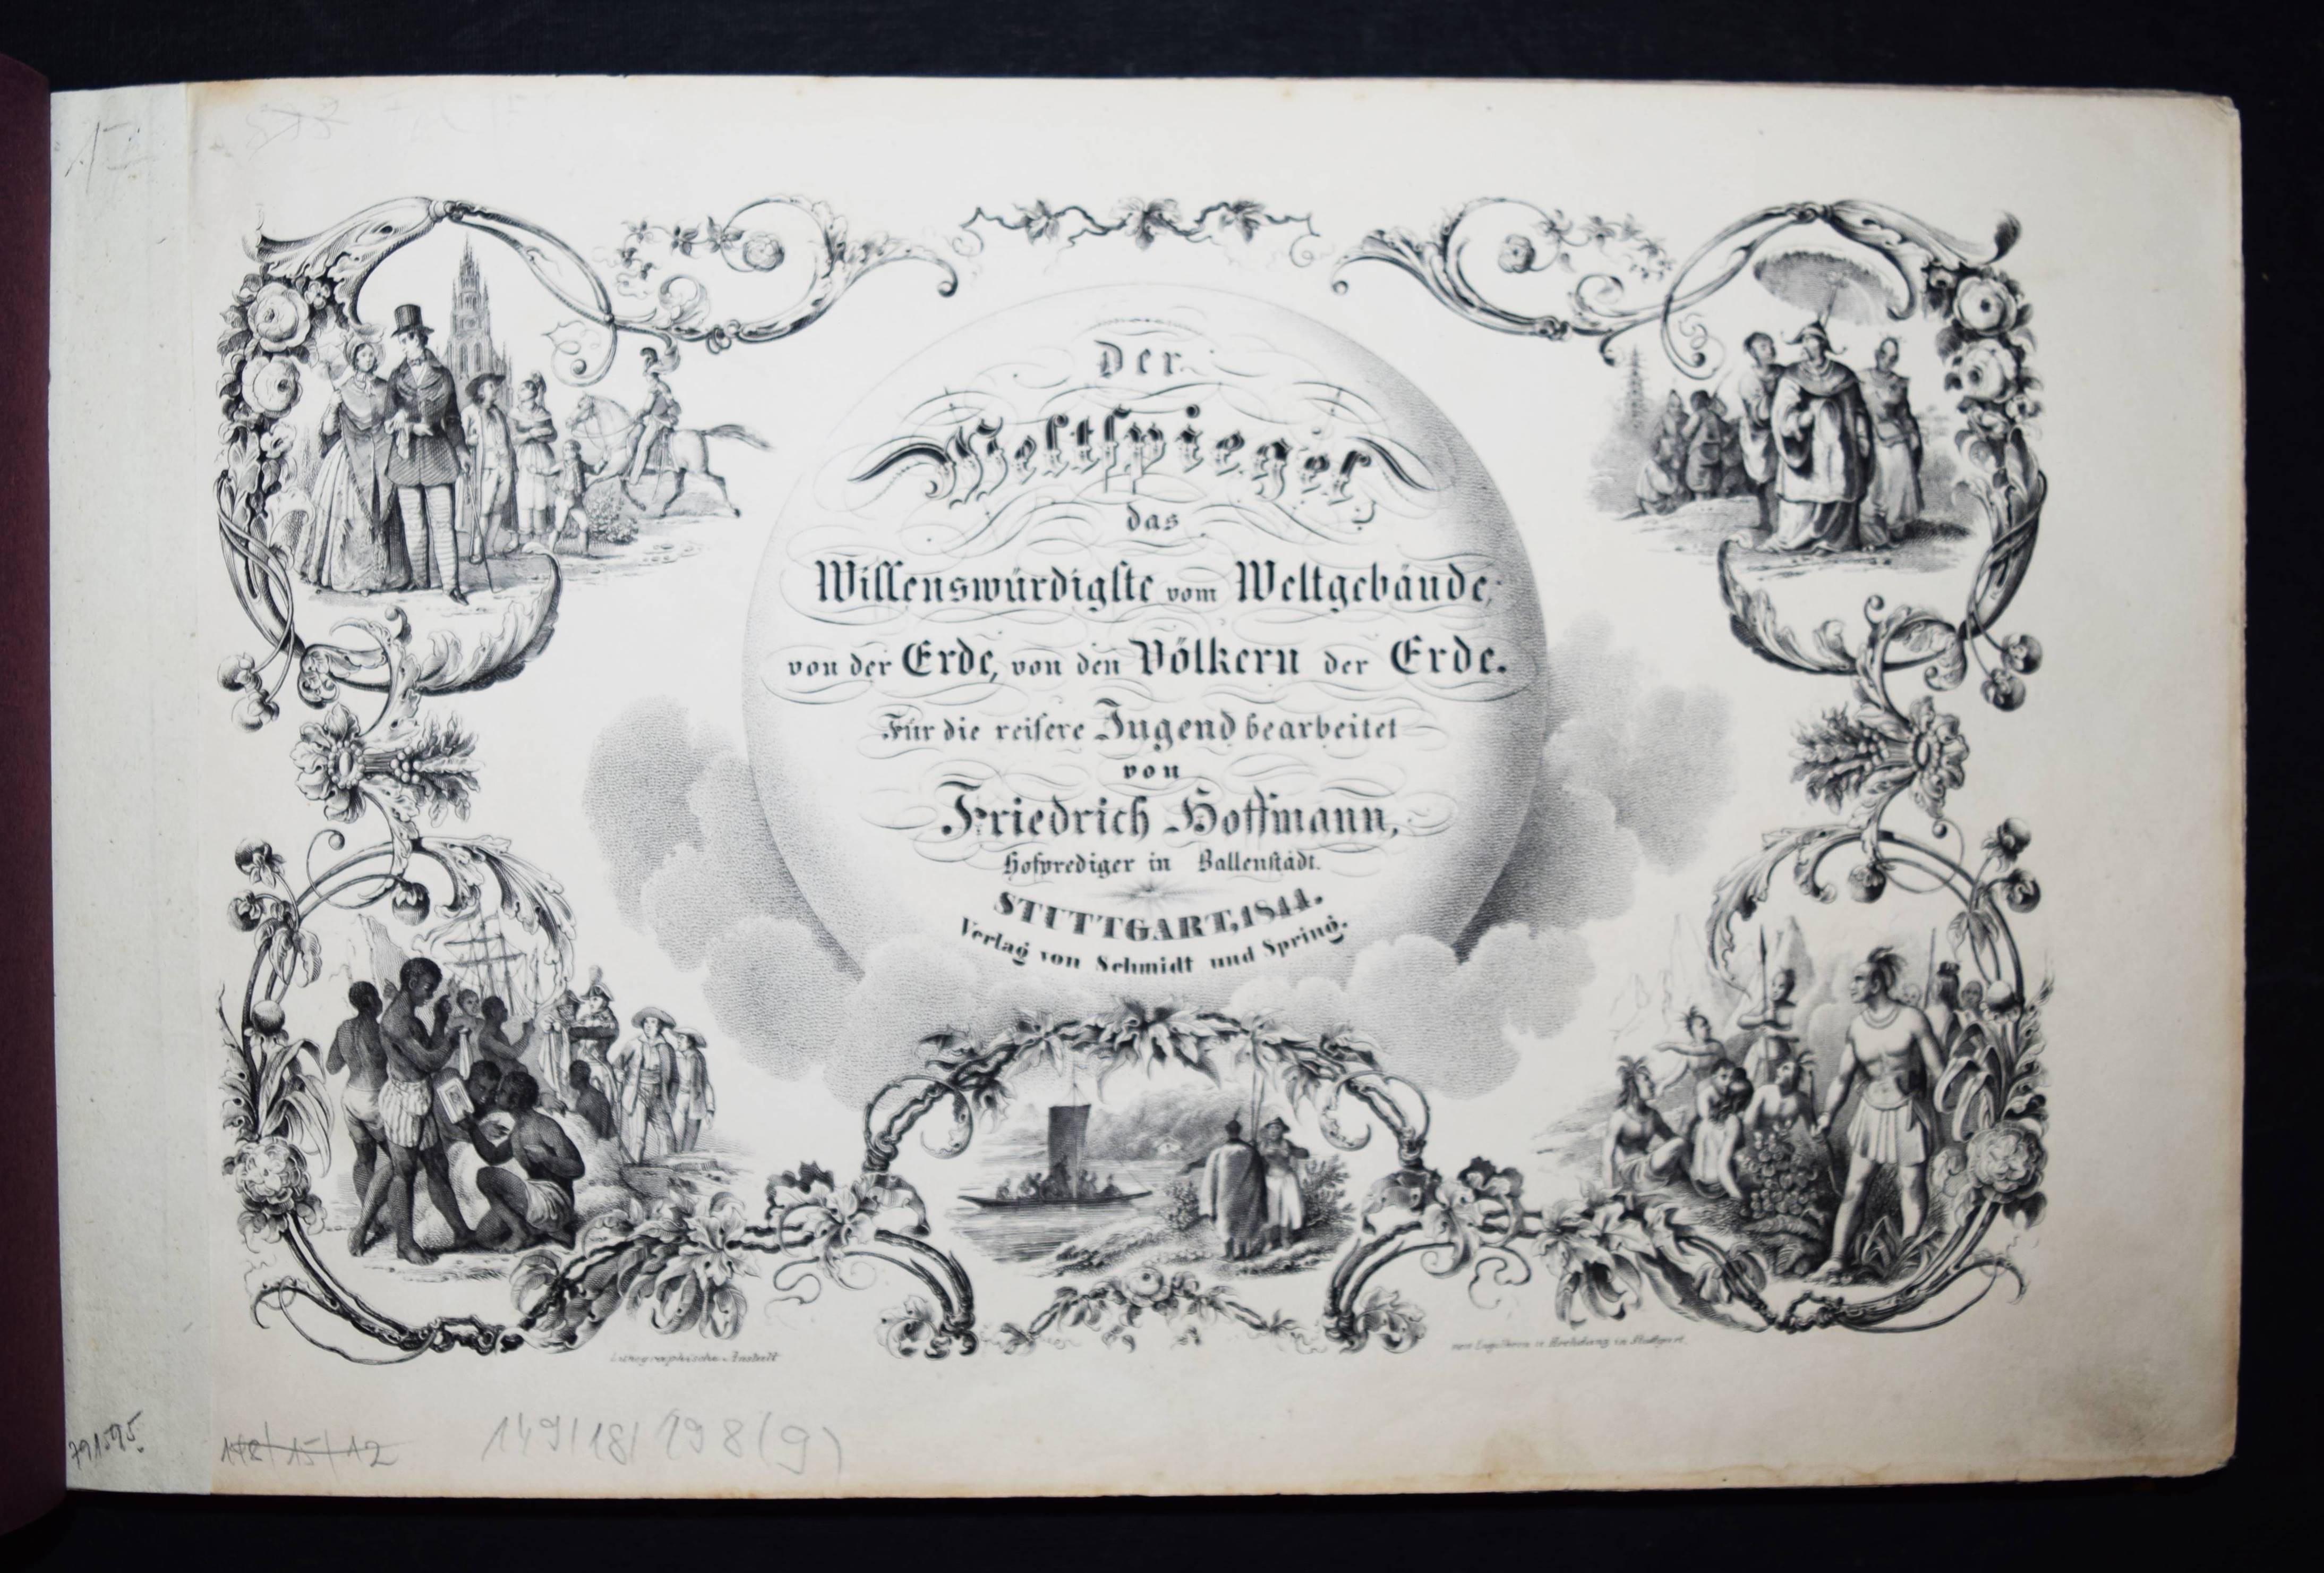 Der
Weltspiegel,
das
Wissenswürdigste vom Weltgebäude,
von der Erde, von den Völkern der Erde.
Für die reifere Jugend bearbeitet
von
Friedrich Hoffmann,
Hofprediger in Ballenstädt.
STUTTGART, 1844.
Verlag von Schmidt und Spring.
Lithographische Anstalt
von Engelhorn u. Hochdanz in Stuttgart.
791595.
148/15/12
149/18/198(9)